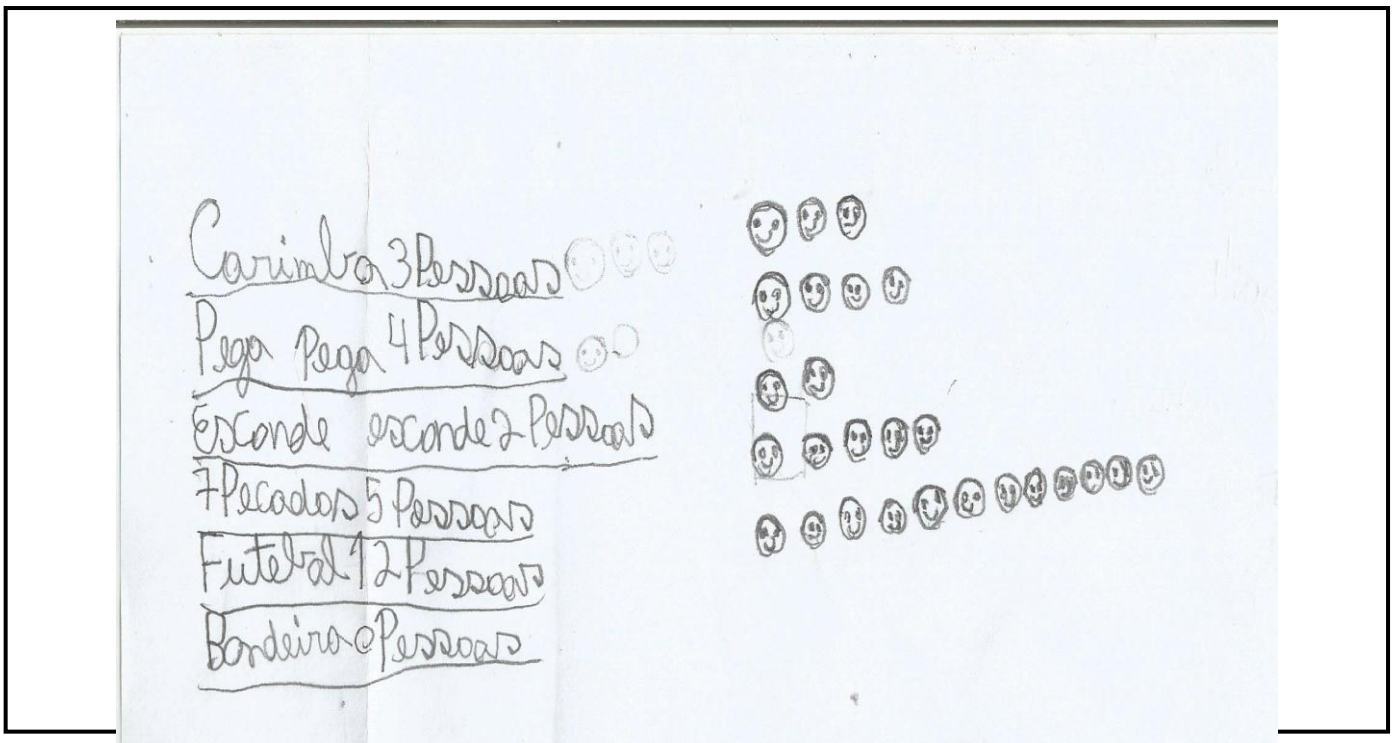 Carimba 3 Pessoas
Pega Pega 4 Pessoas
Esconde esconde 2 Pessoas
7 Pecados 5 Pessoas
Futebal 12 Pessoas
Bandeira 0 Pessoas